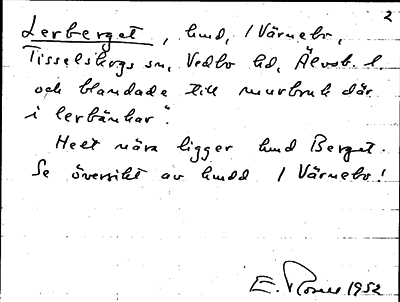 2
Lerberget, hmd, 1 Värnebo,
Tisselskogs sn, Vedbo hd, Älvsb. l.
och blandade till murbruk där
i lerbänkar".
Helt nära ligger hmd Berget.
Se översikt av hmdd 1 Värnebo!
E. Rosell 1952